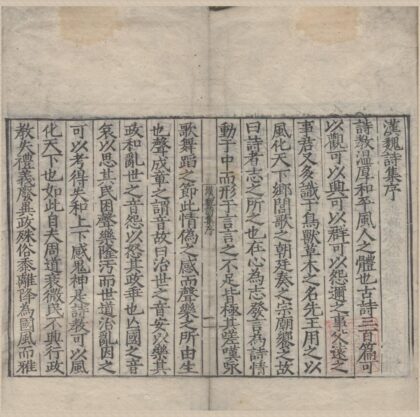 漢魏詩集序
詩教溫厚和平風人之體也古詩三百篇可
以觀可以興可以群可以怨邇之事父遠之
事君又多識于鳥獸草木之名先王用之以
風化天下鄉閭歌之朝廷奏之宗廟饗之故
曰詩者志之所之也在心為志發言為詩情
動于中而形于言言之不足有極其嗟嘆咏
歌舞蹈之節此情偽之感而聲樂之所由生
也聲成章之謂音故曰治世之音安以樂其
政和亂世之音怨以怒其政乖亡國之音
哀以思其民困聲樂隆汚而世道治亂因之
可以考得失和上下感鬼神是詩教可以風
化天下也如此自大周道衰微民不興行政
教失禮義廢其政殊俗黍離降為國風而雅